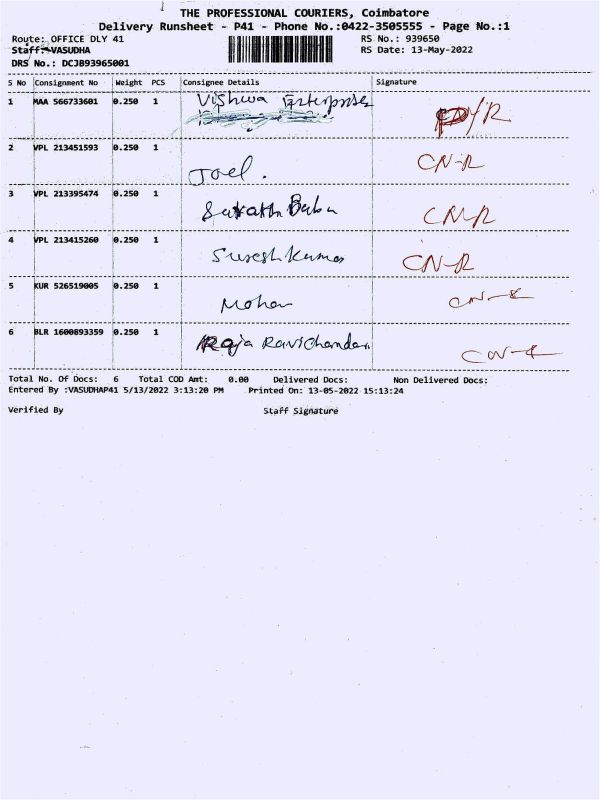 THE PROFESSIONAL COURIERS, Coimbatore
Delivery Runsheet - P41 - Phone No.:0422-3505555 - Page No.:1
Route: OFFICE DLY 41 RS No.: 939650
Staff:-VASUDHA RS Date: 13-May-2022
DRS No.: DCJB93965001
S No Consignment No Weight PCS Consignee Details Signature
1 MAA 566733601 0.250 1 Vishwa Enterprises
2 VPL 213451593 0.250 1 Joel. CN-R
3 VPL 213395474 0.250 1 Babu CN-R
4 VPL 213415260 0.250 1 Sureshkumar CN-R
5 KUR 526519005 0.250 1 Mohan
6 BLR 1600893359 0.250 1 Raja Ravichandran
Total No. Of Docs: 6 Total COD Amt: 0.00 Delivered Docs: Non Delivered Docs:
Entered By :VASUDHAP41 5/13/2022 3:13:20 PM Printed On: 13-05-2022 15:13:24
Verified By Staff Signature